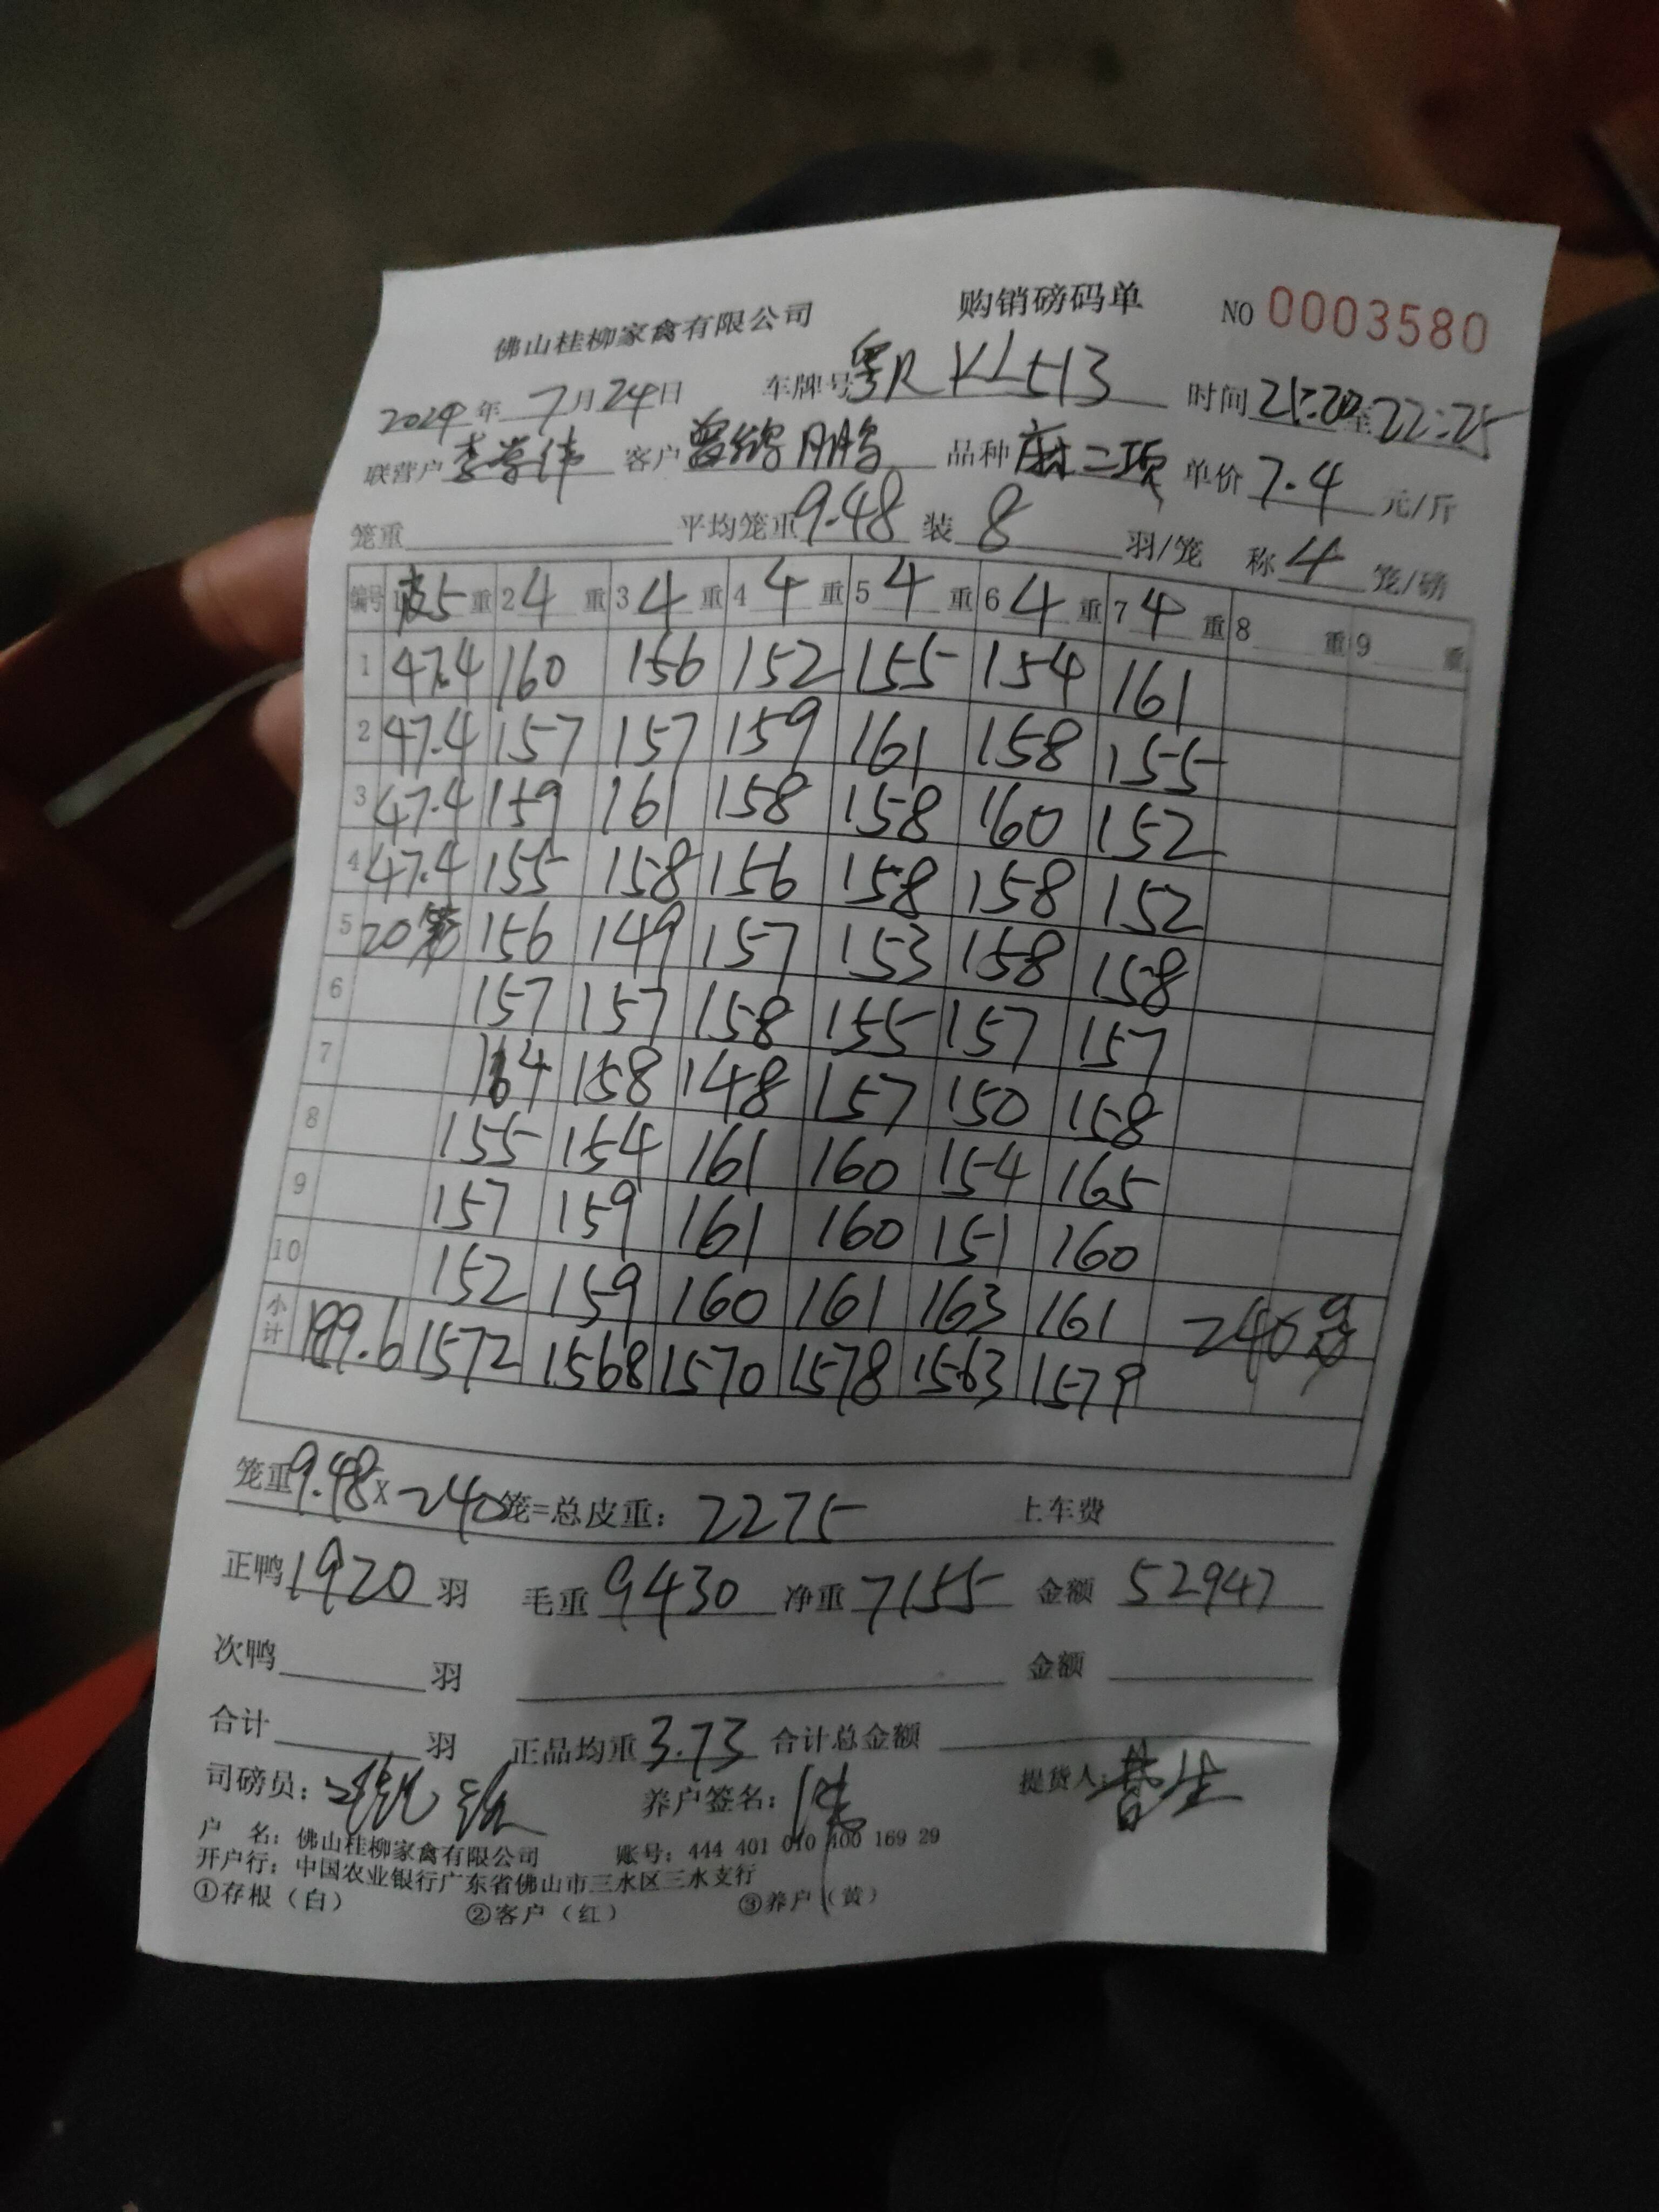 佛山桂柳家禽有限公司 购销磅码单 NO 0003580
2024年 7月24日 车牌号 粤R KL513 时间 21:20至22:25
联营户 李 伟 客户 鹏 品种 麻二项 单价 7.4 元/斤
笼重 平均笼重 9.48 装 8 羽/笼 称 4 笼/磅
编号 1皮5重 2 4 重 3 4 重 4 4 重 5 4 重 6 4 重 7 4 重 8 重 9 重
1 47.4 160 156 152 155 154 161
2 47.4 157 157 159 161 158 155
3 47.4 159 161 158 158 160 152
4 47.4 155 158 156 158 158 152
5 20笼 156 149 157 153 158 158
6 157 157 158 155 157 157
7 164 158 148 157 150 158
8 155 154 161 160 154 165
9 157 159 161 160 151 160
10 152 159 160 161 163 161
小计 189.6 1572 1568 1570 1578 1563 1579 240笼
笼重 9.48 X 240 笼=总皮重: 2275 上车费
正鸭 1920 羽 毛重 9430 净重 7155 金额 52947
次鸭 羽 金额
合计 羽 正品均重 3.73 合计总金额
司磅员: 养户签名: 伟 提货人: 曾生
户 名: 佛山桂柳家禽有限公司 账号: 444 401 010 400 169 29
开户行: 中国农业银行广东省佛山市三水区三水支行
①存根（白） ②客户（红） ③养户（黄）